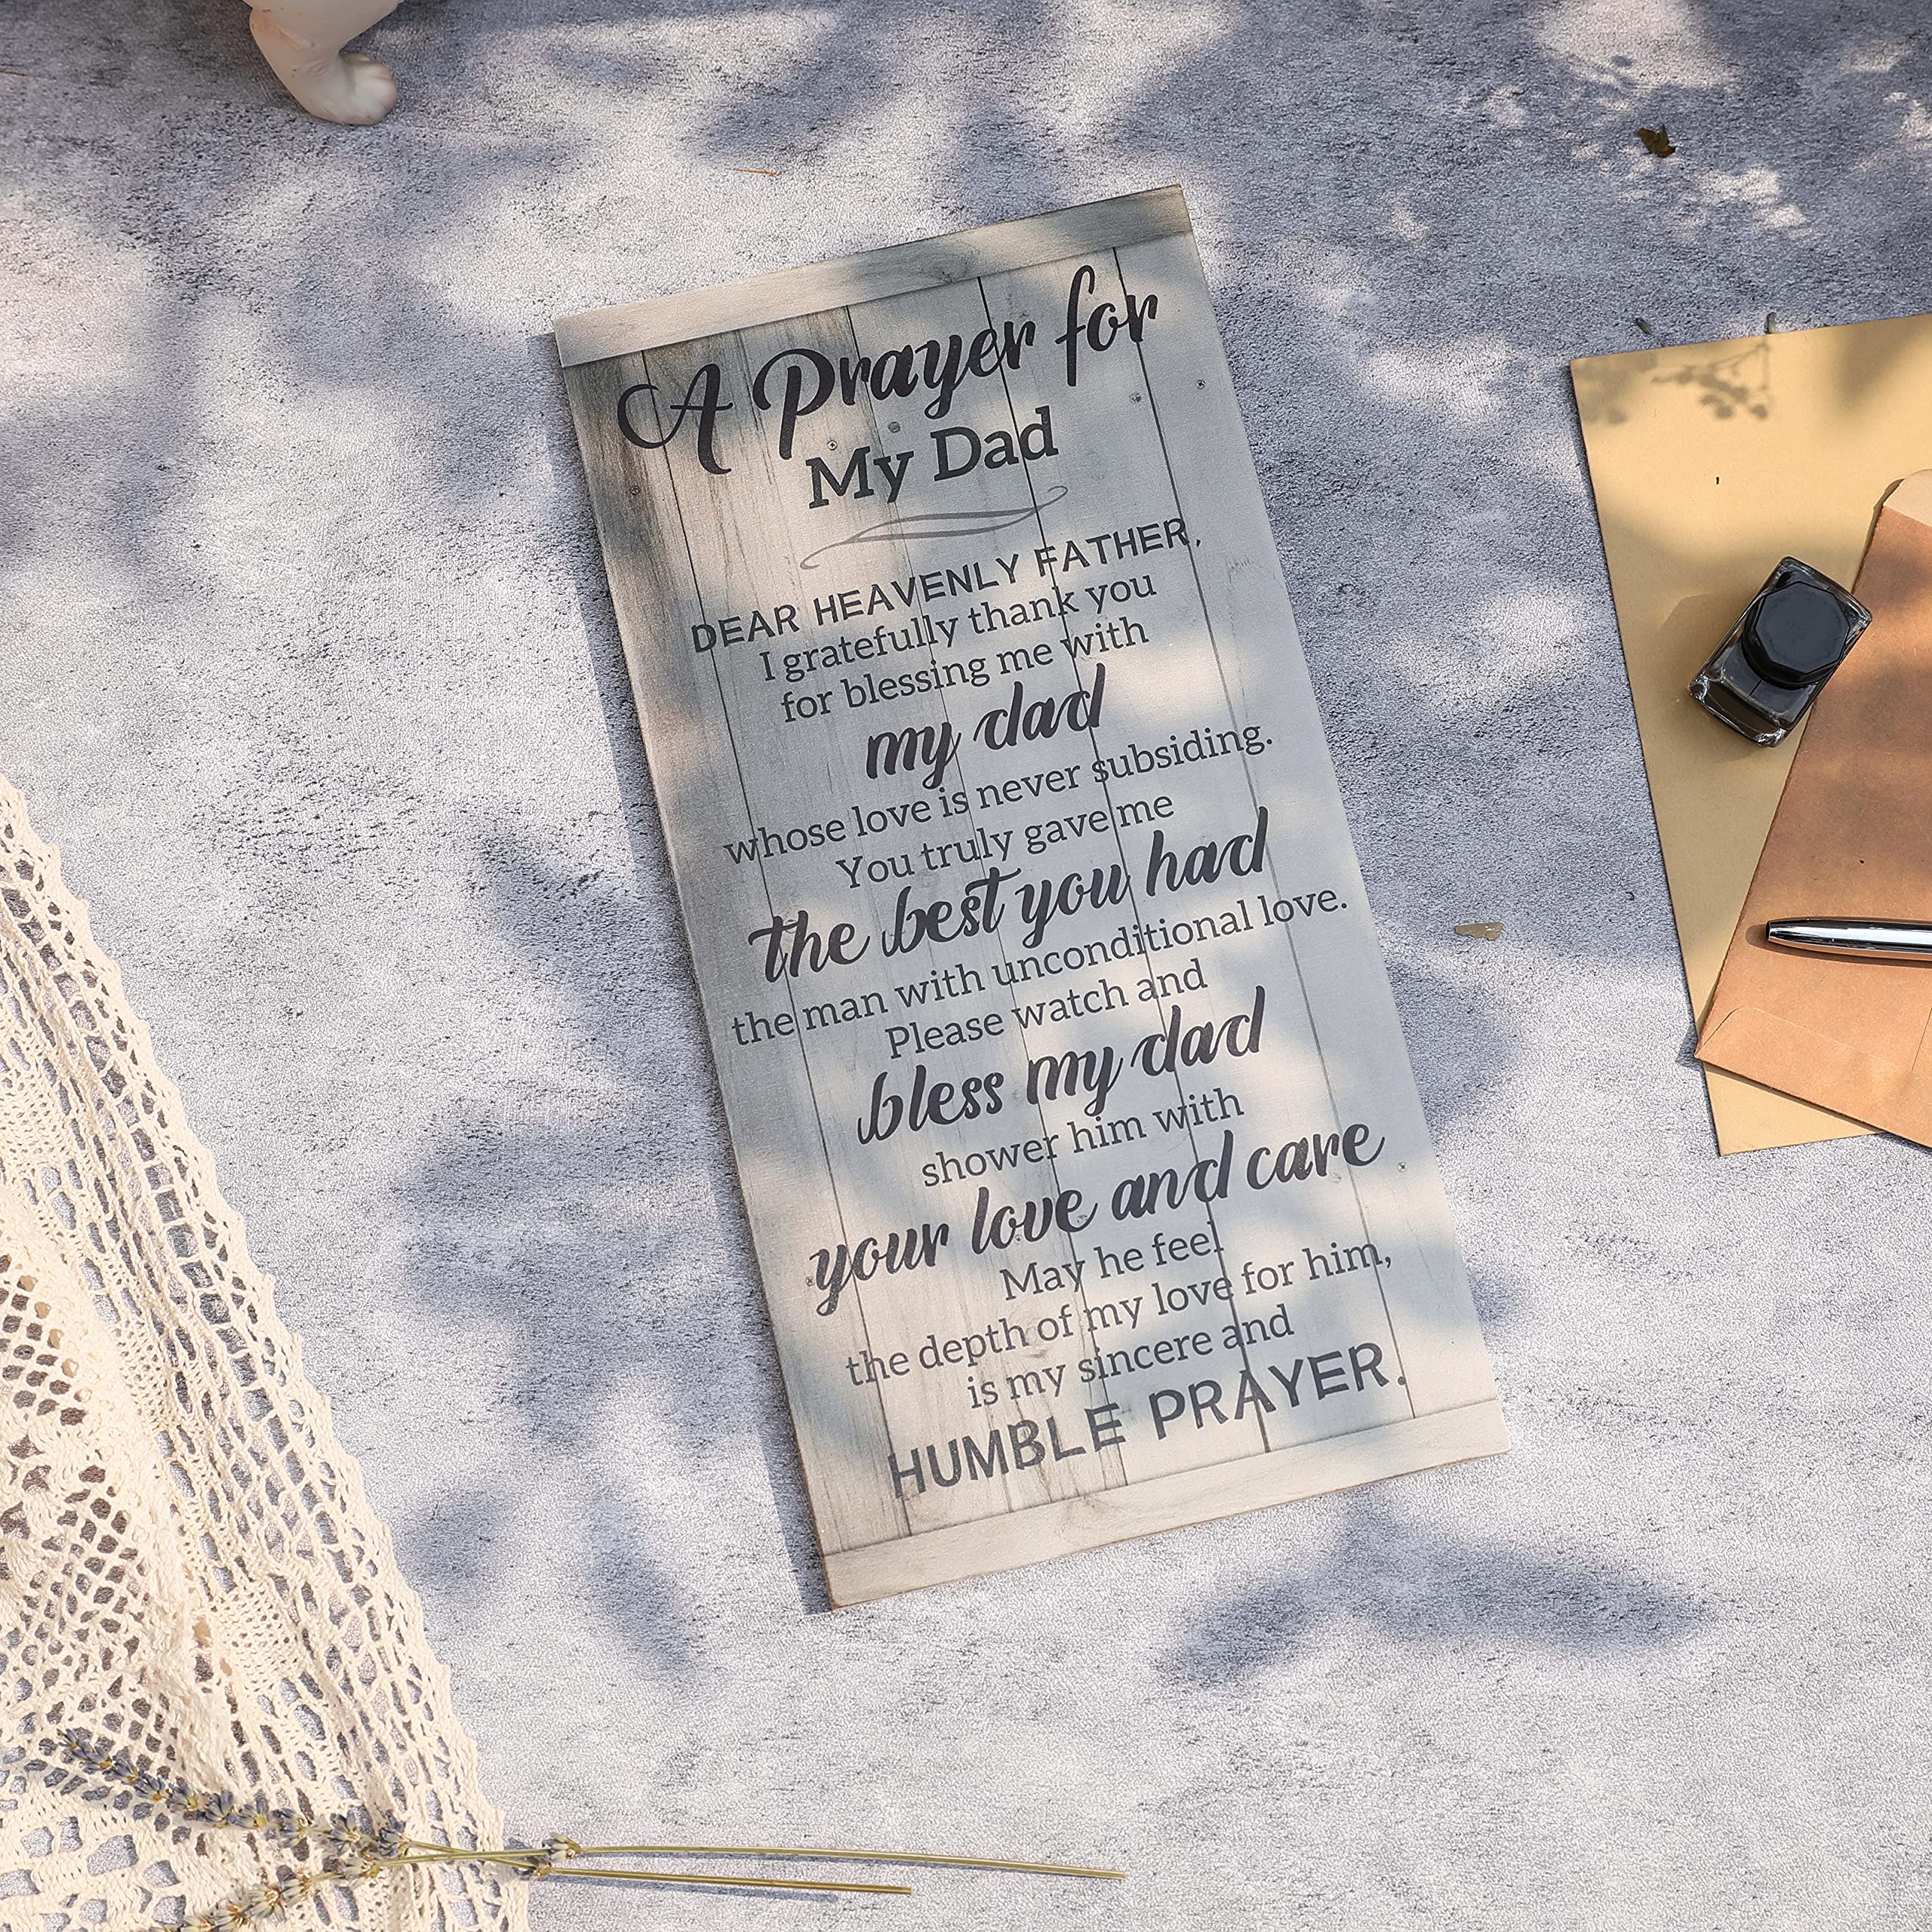 A Prayer for
My Dad
DEAR HEAVENLY FATHER,
I gratefully thank you
for blessing me with
my dad
whose love is never subsiding.
You truly gave me
the best you had
the man with unconditional love.
Please watch and
bless my dad
shower him with
your love and care
May he feel
the depth of my love for him,
is my sincere and
HUMBLE PRAYER.